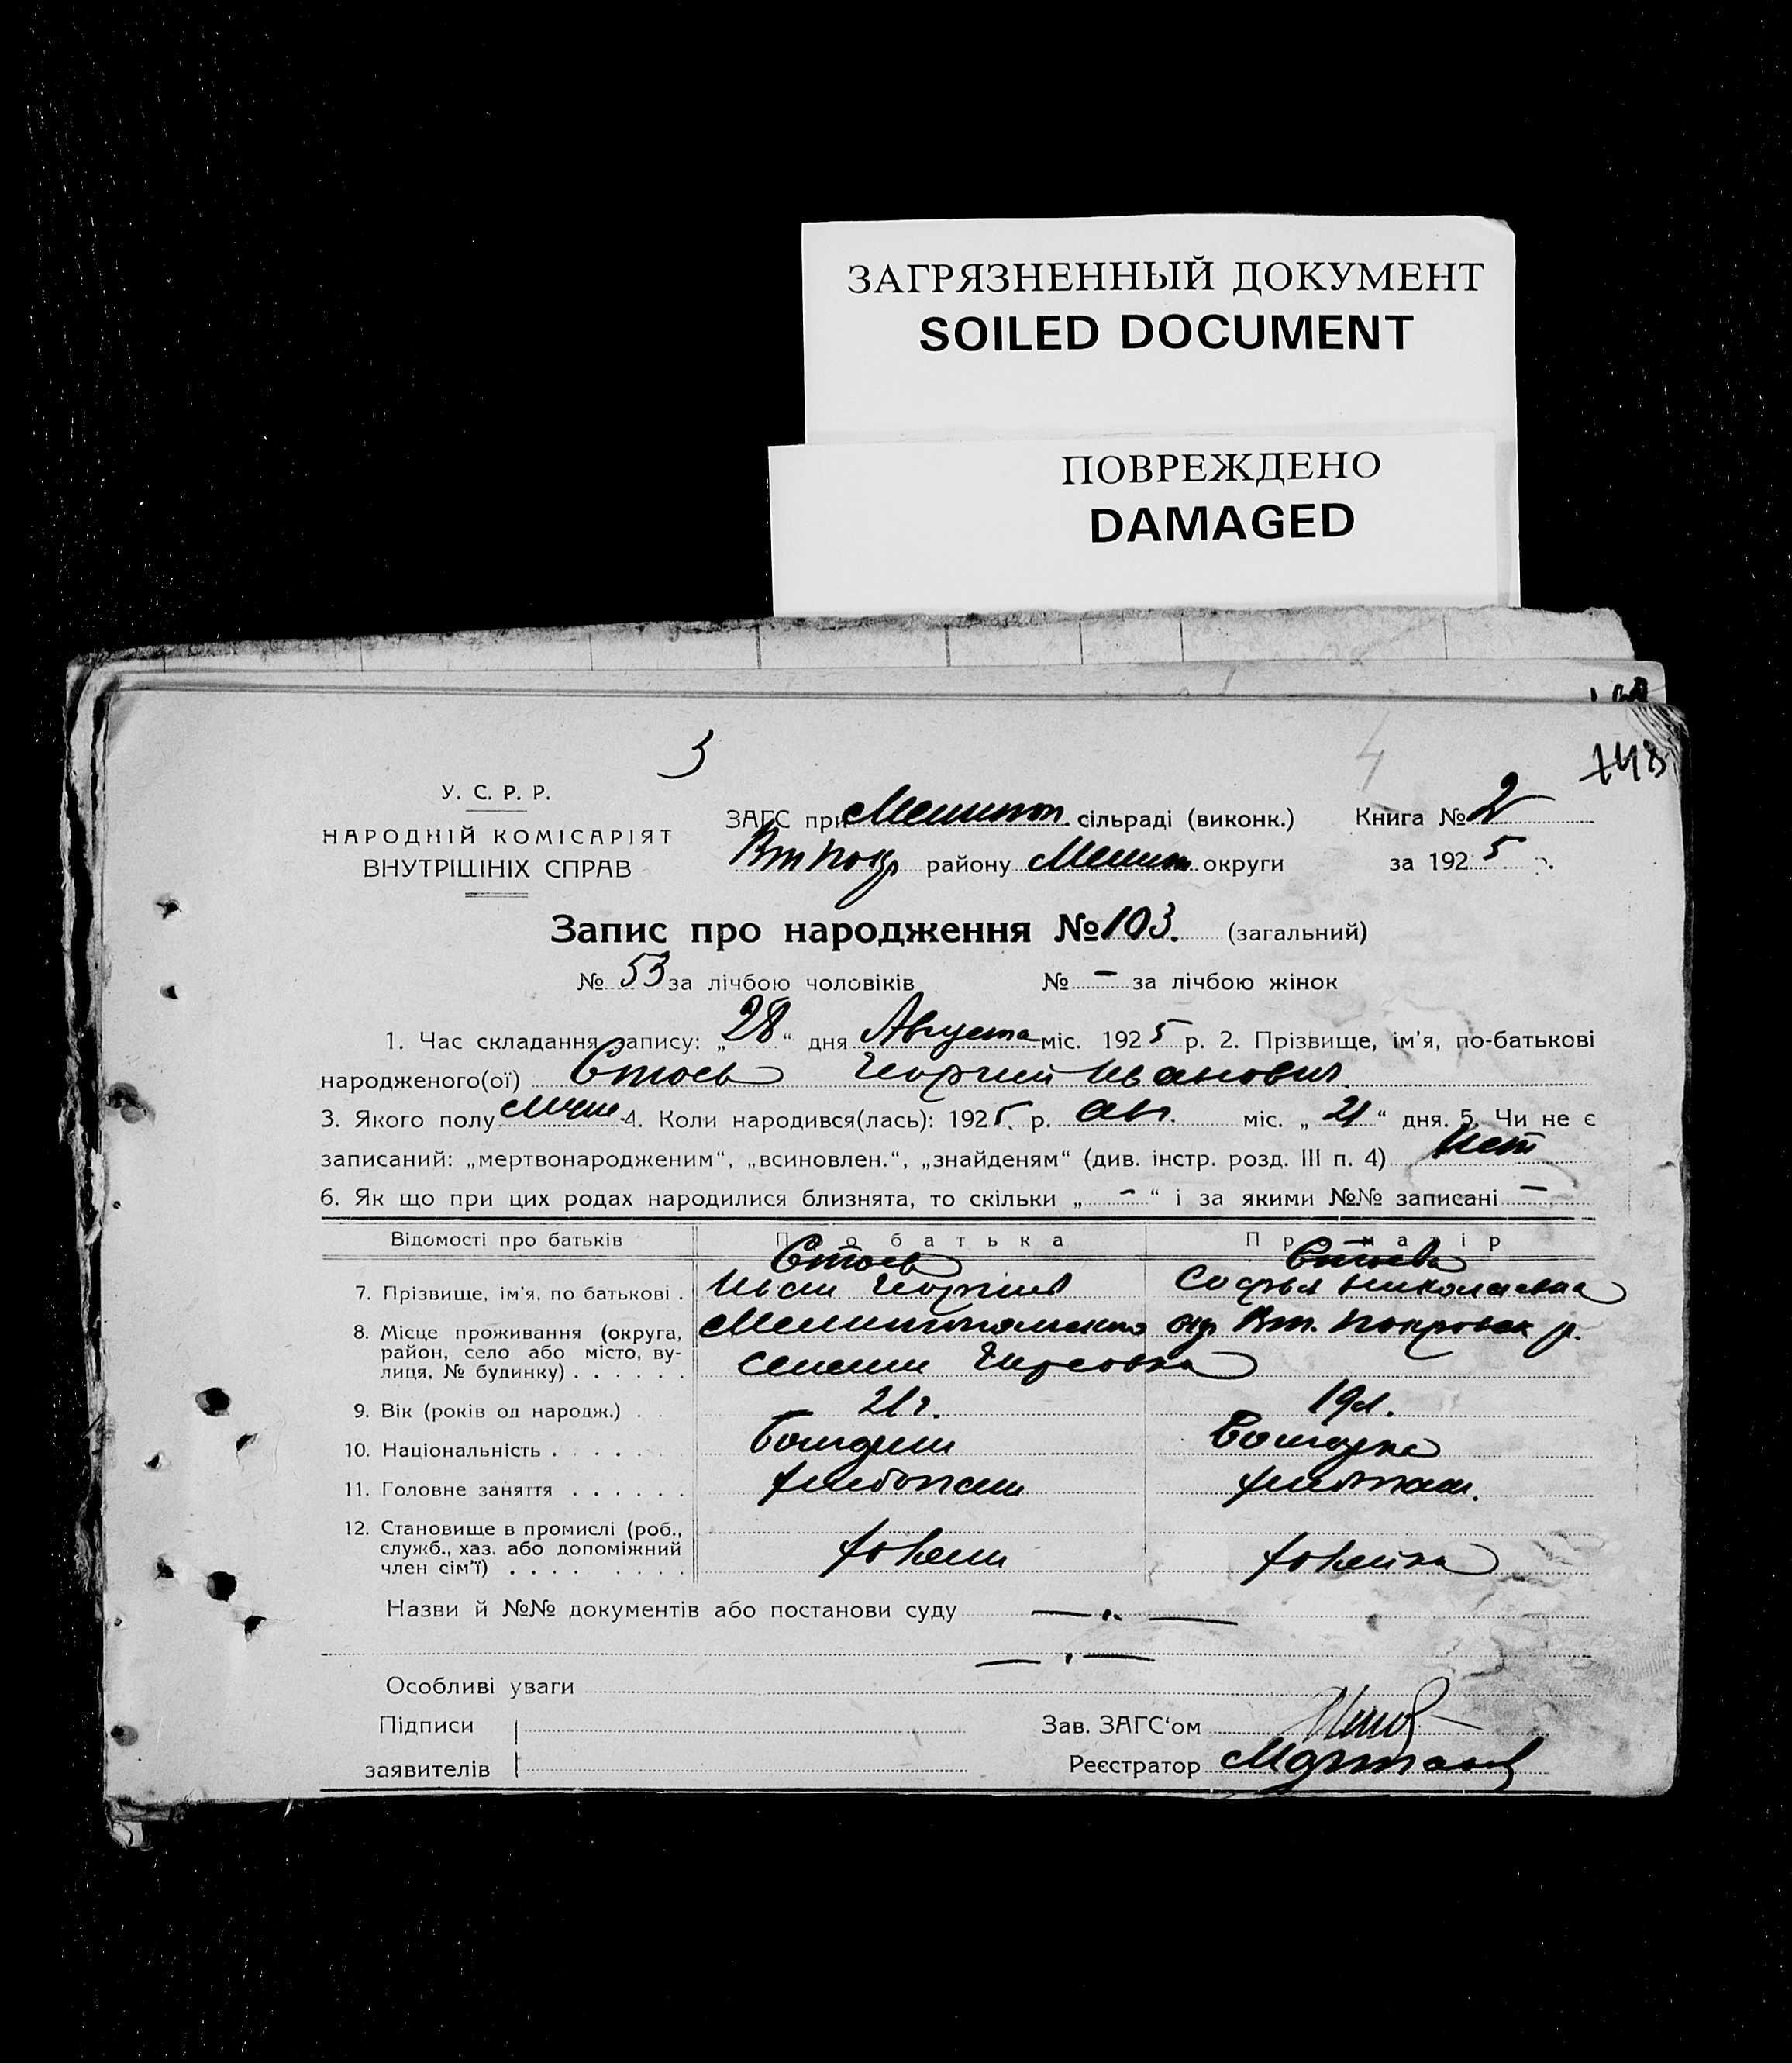 ЗАГРЯЗНЕННЫЙ ДОКУМЕНТ
SOILED DOCUMENT
ПОВРЕЖДЕНО
DAMAGED
3 4 148
У. С. Р. Р.
НАРОДНІЙ КОМІСАРІЯТ
ВНУТРІШНІХ СПРАВ
ЗАГС при Мелитоп. сільраді (виконк.) Книга № 2
Вт Покр району Мелит округи за 1925 р.
Запис про народження № 103. (загальний)
№ 53 за лічбою чоловіків № – за лічбою жінок
1. Час складання запису: „28“ дня Августа міс. 1925 р. 2. Прізвище, ім’я, по-батькові
народженого(ої) Стоев Георгий Иванович.
3. Якого полу муж. 4. Коли народився(лась): 1925. р. авг. міс. „21“ дня. 5. Чи не є
записаний: „мертвонародженим“, „всиновлен.“, „знайденям“ (див. інстр. розд. III п. 4) Нет
6. Як що при цих родах народилися близнята, то скільки „ – “ і за якими №№ записані –
Відомості про батьків Про батька Про матір
Стоев Стоева
7. Прізвище, ім’я, по батькові . Иван Георгиев Софья Николаевна
8. Місце проживання (округа, район, село або місто, ву-лиця, № будинку) . . . . . . Мелитопольского окр Вт. Покровск р.
селении
9. Вік (років од народж.) . 21 г. 19 л.
10. Національність . . . . . . Болгарин Болгарка
11. Головне заняття . . . . . . хлебопаш хлебопаш.
12. Становище в промислі (роб., служб., хаз. або допоміжний член сім’ї) . . . . . . . . хозяин хозяйка
Назви й №№ документів або постанови суду — . —
— . —
Особливі уваги
Підписи Зав. ЗАГС‘ом
заявителів Реєстратор